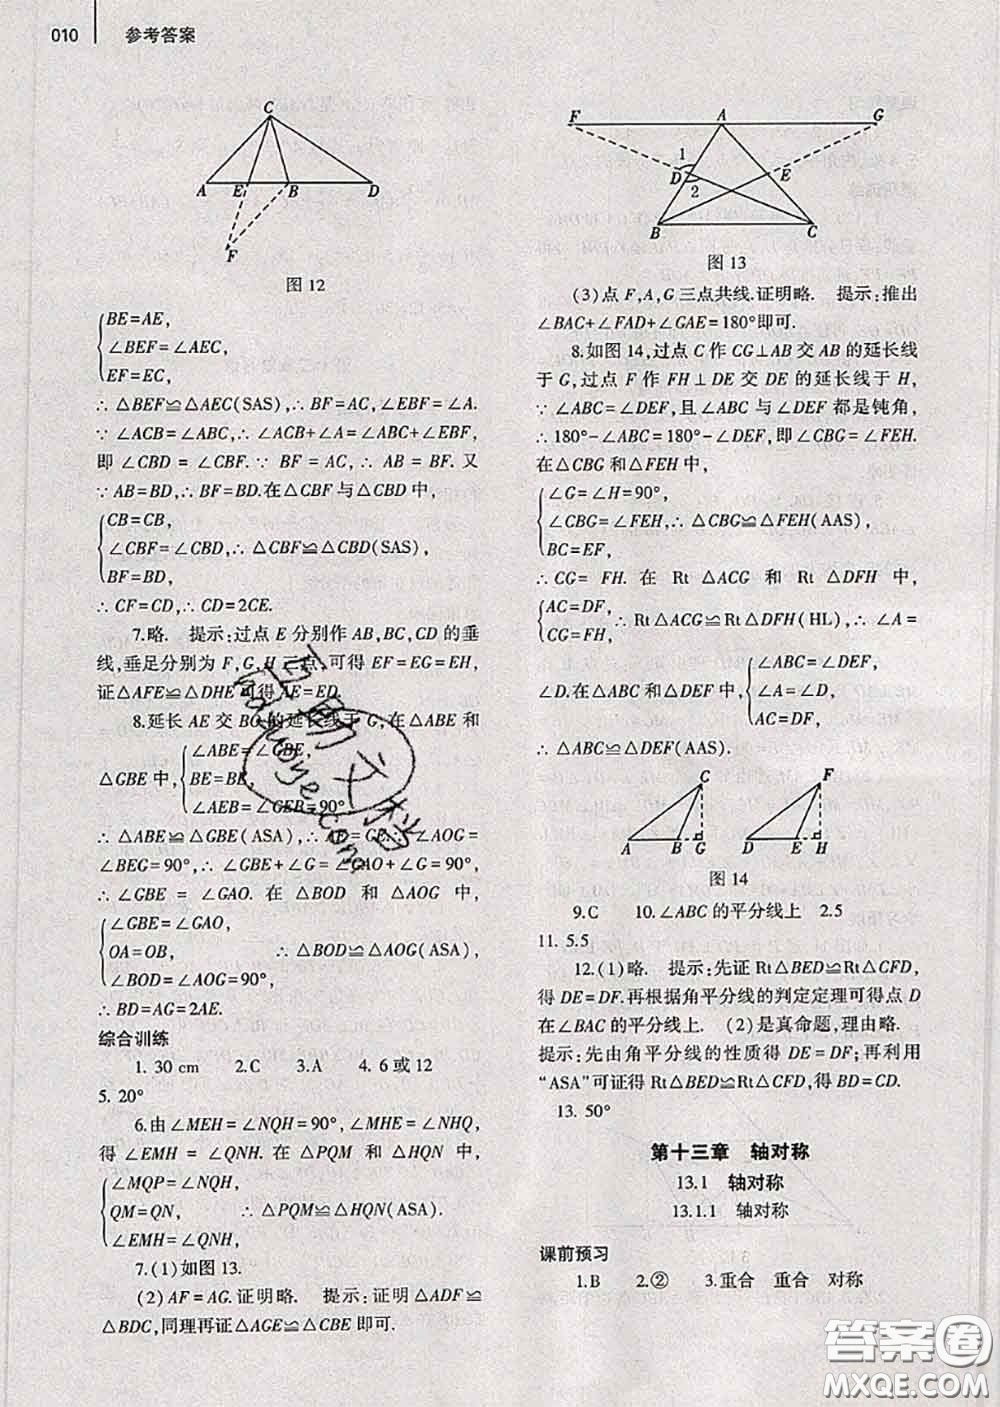 010 参考答案
C
A E B D
F
图 12
BE=AE,
∠BEF=∠AEC,
EF=EC,
∴△BEF≌△AEC(SAS),∴BF=AC,∠EBF=∠A.
∵∠ACB=∠ABC,∴∠ACB+∠A=∠ABC+∠EBF,
即∠CBD=∠CBF.∵BF=AC,∴AB=BF.又
∵AB=BD,∴BF=BD.在△CBF与△CBD中,
CB=CB,
∠CBF=∠CBD,∴△CBF≌△CBD(SAS),
BF=BD,
∴CF=CD,∴CD=2CE.
7.略. 提示:过点E分别作AB,BC,CD的垂
线,垂足分别为F,G,H三点.可得EF=EG=EH,
证△AFE≌△DHE可得AE=ED.
8.延长AE交BC的延长线于G,在△ABE和
△GBE中,
∠ABE=∠GBE,
BE=BE,
∠AEB=∠GEB=90°
∴△ABE≌△GBE(ASA),∴AE=GE.∵∠AOG=
∠BEG=90°,∴∠GBE+∠G=∠GAO+∠G=90°,
∴∠GBE=∠GAO.在△BOD和△AOG中,
∠GBE=∠GAO,
OA=OB, ∴△BOD≌△AOG(ASA),
∠BOD=∠AOG=90°
∴BD=AG=2AE.
综合训练
1. 30 cm 2.C 3.A 4. 6或12
5. 20°
6.由∠MEH=∠NQH=90°,∠MHE=∠NHQ,
得∠EMH=∠QNH.在△PQM和△HQN中,
∠MQP=∠NQH,
QM=QN, ∴△PQM≌△HQN(ASA).
∠EMH=∠QNH,
7.(1)如图13.
(2)AF=AG.证明略. 提示:证明△ADF≌
△BDC,同理再证△AGE≌△CBE即可.
F A G
1
D 2 E
B C
图 13
(3)点F,A,G三点共线.证明略. 提示:推出
∠BAC+∠FAD+∠GAE=180°即可.
8.如图14,过点C作CG⊥AB交AB的延长线
于G,过点F作FH⊥DE交DE的延长线于H,
∵∠ABC=∠DEF,且∠ABC与∠DEF都是钝角,
∴180°-∠ABC=180°-∠DEF,即∠CBG=∠FEH.
在△CBG和△FEH中,
∠G=∠H=90°,
∠CBG=∠FEH,∴△CBG≌△FEH(AAS),
BC=EF,
∴CG=FH.在Rt△ACG和Rt△DFH中,
AC=DF,
CG=FH,
∴Rt△ACG≌Rt△DFH(HL),∴∠A=
∠D.在△ABC和△DEF中,
∠ABC=∠DEF,
∠A=∠D,
AC=DF,
∴△ABC≌△DEF(AAS).
C F
A B G D E H
图 14
9.C 10.∠ABC的平分线上 2.5
11. 5.5
12.(1)略. 提示:先证Rt△BED≌Rt△CFD,
得DE=DF.再根据角平分线的判定定理可得点D
在∠BAC的平分线上. (2)是真命题,理由略.
提示:先由角平分线的性质得DE=DF;再利用
“ASA”可证得Rt△BED≌Rt△CFD,得BD=CD.
13. 50°
第十三章 轴对称
13.1 轴对称
13.1.1 轴对称
课前预习
1.B 2.② 3.重合 重合 对称
答案圈
MXQE.COM